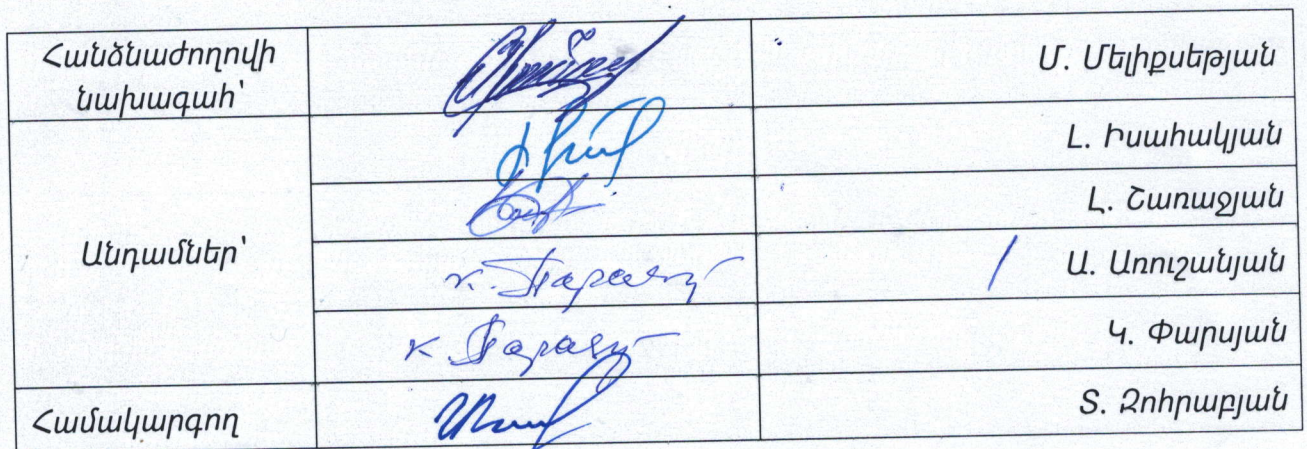 Հանձնաժողովի
նախագահ՝
Մ. Մելիքսեթյան
Լ. Իսահակյան
Լ. Շառաջյան
Անդամներ՝
/ Ա. Առուշանյան
Կ. Փարսյան
Համակարգող
Տ. Զոհրաբյան